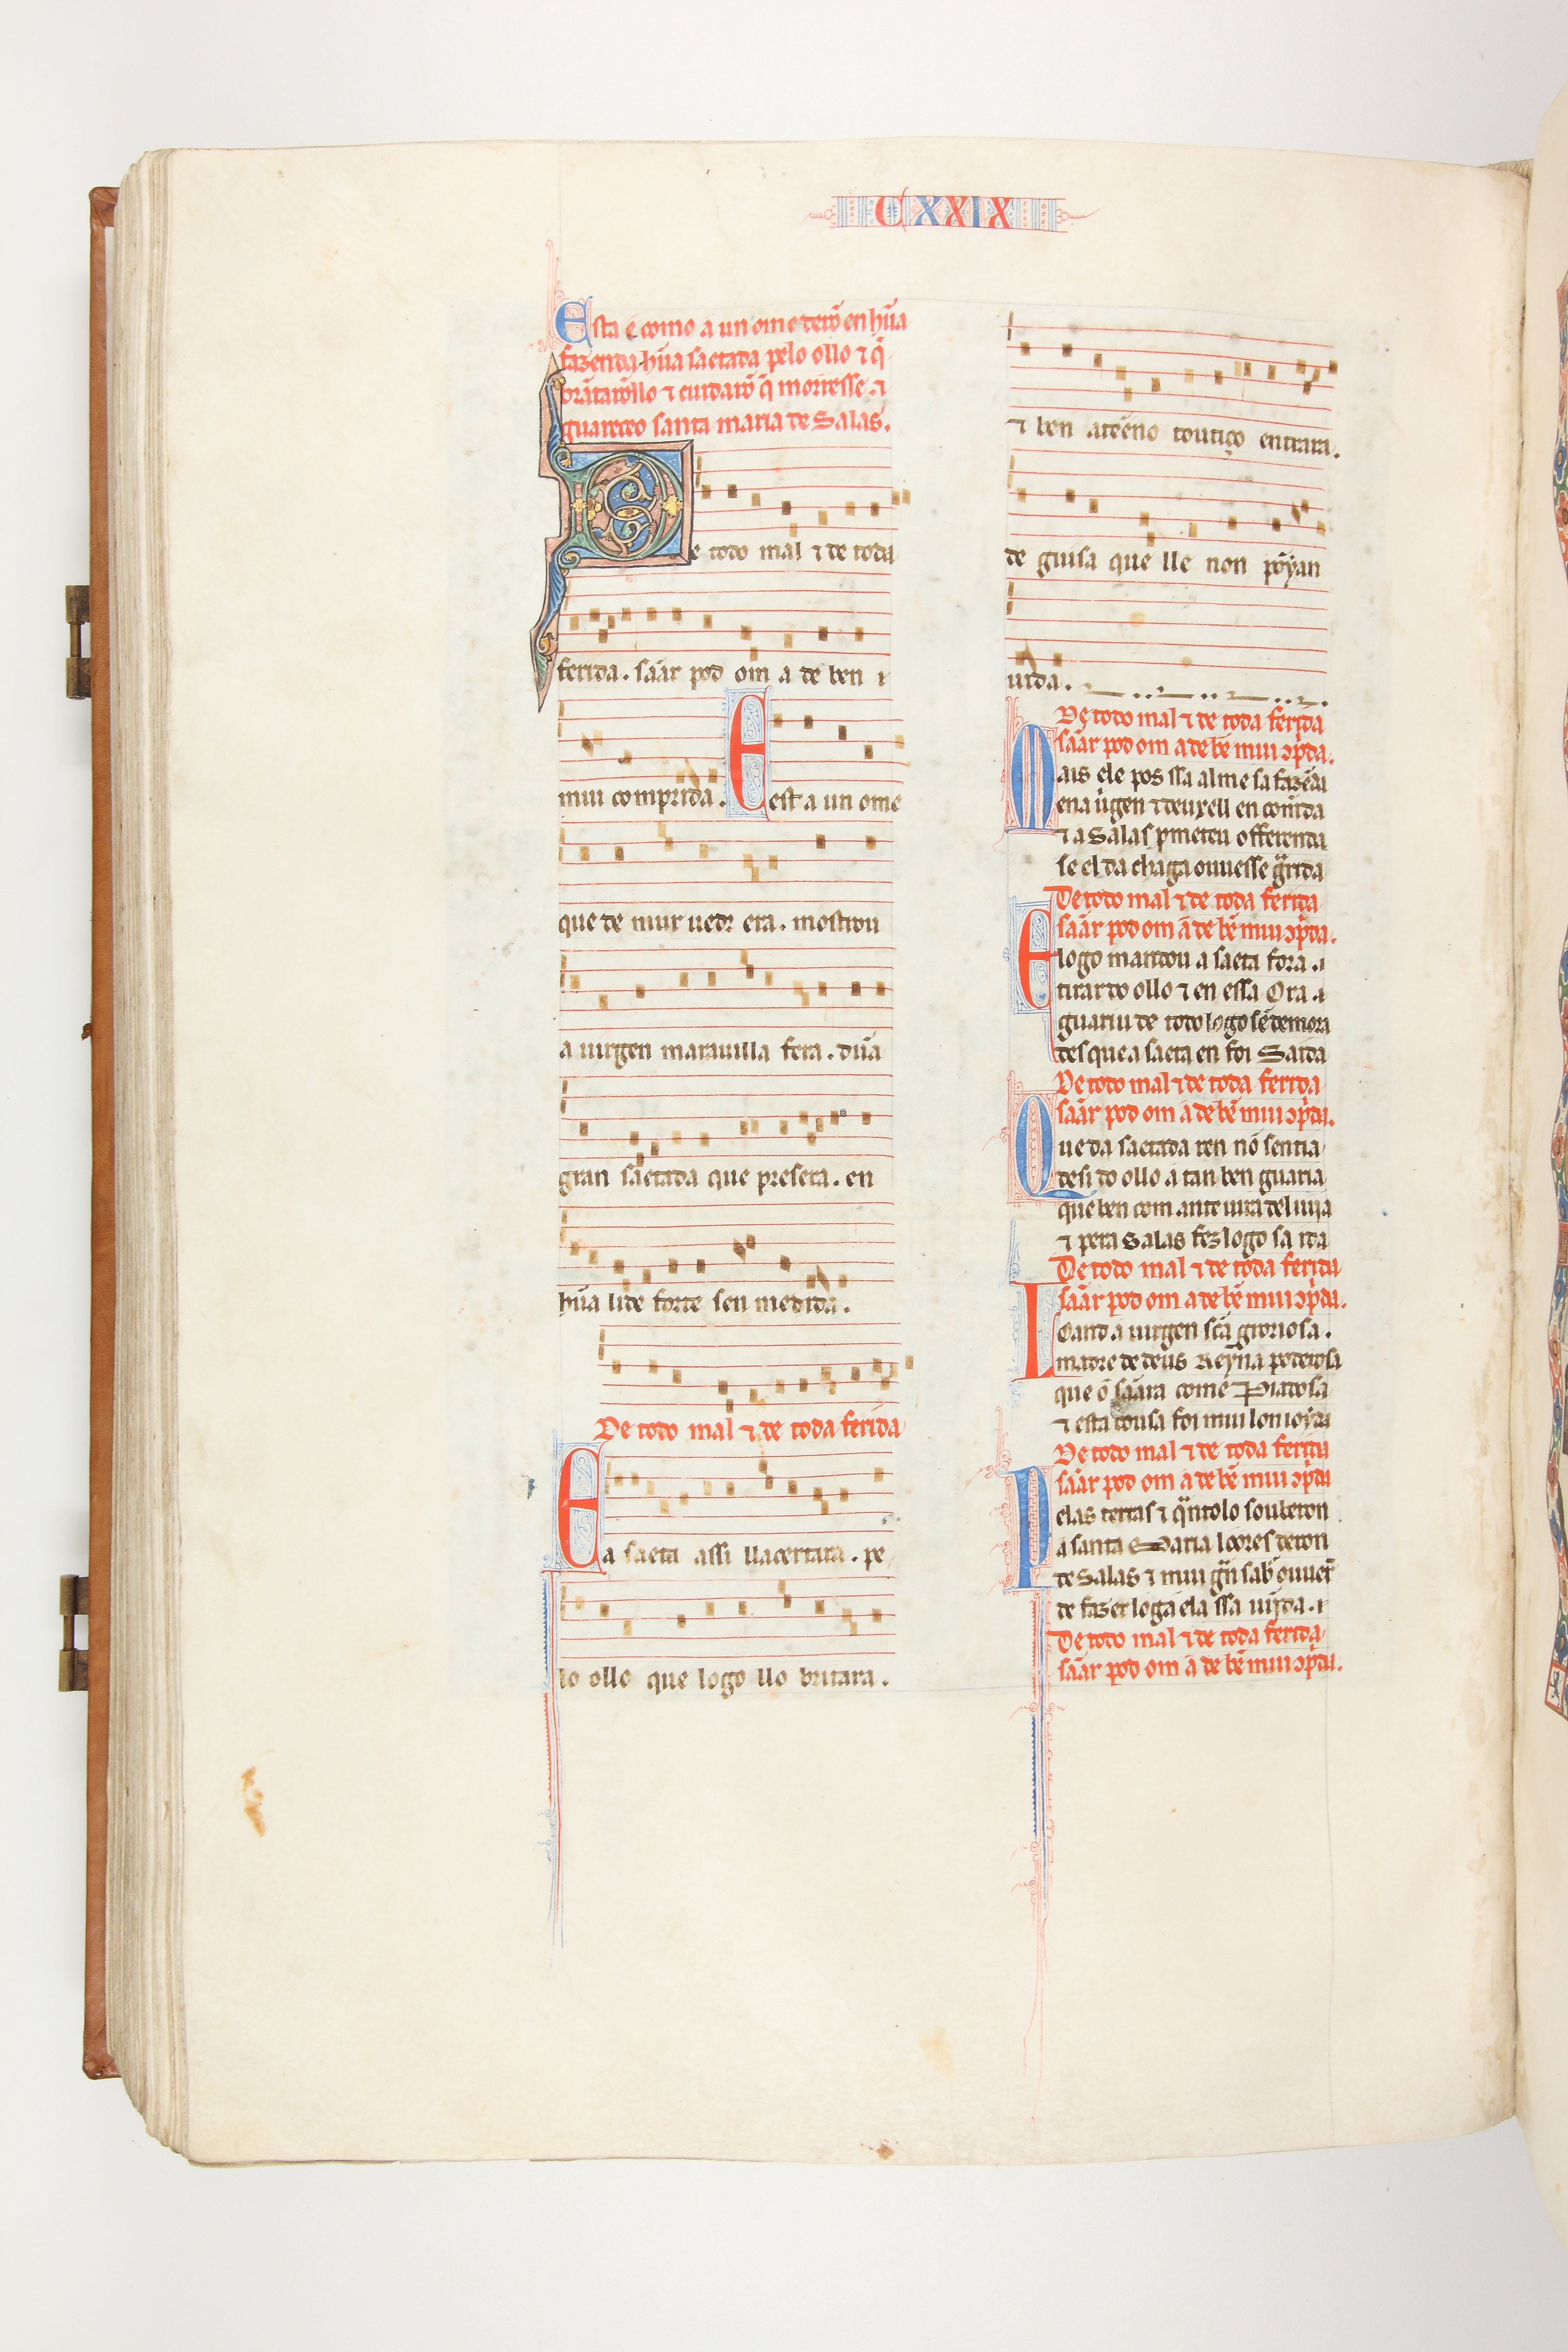 CXXIX
Esta é como a un ome derõ en hũa
fazenda hũa saetada pelo ollo ⁊ q̃
brãtarõllo ⁊ cuidarõ q̃ morresse. ⁊
guareceo santa maria de Salas.
De todo mal ⁊ de toda
ferida. sãar pod om a de ben ⁊
mui comprida. E est a un ome
que de mur uedr era. mostrou
a uirgen marauilla fera. dũa
gran saetada que presera. en
hũa lide forte sen medida.
De todo mal ⁊ de toda ferida
E a saeta assi llacertara. pe
lo ollo que logo llo britara.
⁊ ben atẽeno toutiço entrara.
de guisa que lle non põyan
uida.
De todo mal ⁊ de toda ferida
sãar pod om a de bẽ mui ↄp̃da.
Mais ele pos ssa alme sa fazẽda
ena uirgen ⁊ teuxell en comẽda
⁊ a Salas pmeteu offerenda
se el da chaga ouuesse g̃rida
De todo mal ⁊ de toda ferida
sãar pod om a de bẽ mui ↄp̃da.
E logo mandou a saeta fora. ⁊
tirar do ollo ⁊ en essa Ora. ⁊
guariu de todo logo sẽ demora
des que a saeta en foi Saida
De todo mal ⁊ de toda ferida
sãar pod om a de bẽ mui ↄp̃da.
Que da saetada ren nõ sentia
desi do ollo a tan ben guaria
que ben com ante uira del uija
⁊ pera Salas fez logo sa ida
De todo mal ⁊ de toda ferida
sãar pod om a de bẽ mui ↄp̃da.
Loand a uirgen sc̃a groriosa.
madre de deus Reyña poderosa
que õ sãara come Piadosa
⁊ esta cousa foi mui lon ioyda
De todo mal ⁊ de toda ferida
sãar pod om a de bẽ mui ↄp̃da
Pelas terras ⁊ q̃ntolo souberon
a santa Maria loores deron
de Salas ⁊ mui g̃n sabor ouuer̃
de fazer log a ela ssa uijda. ⁊
De todo mal ⁊ de toda ferida
sãar pod om a de bẽ mui ↄp̃da.